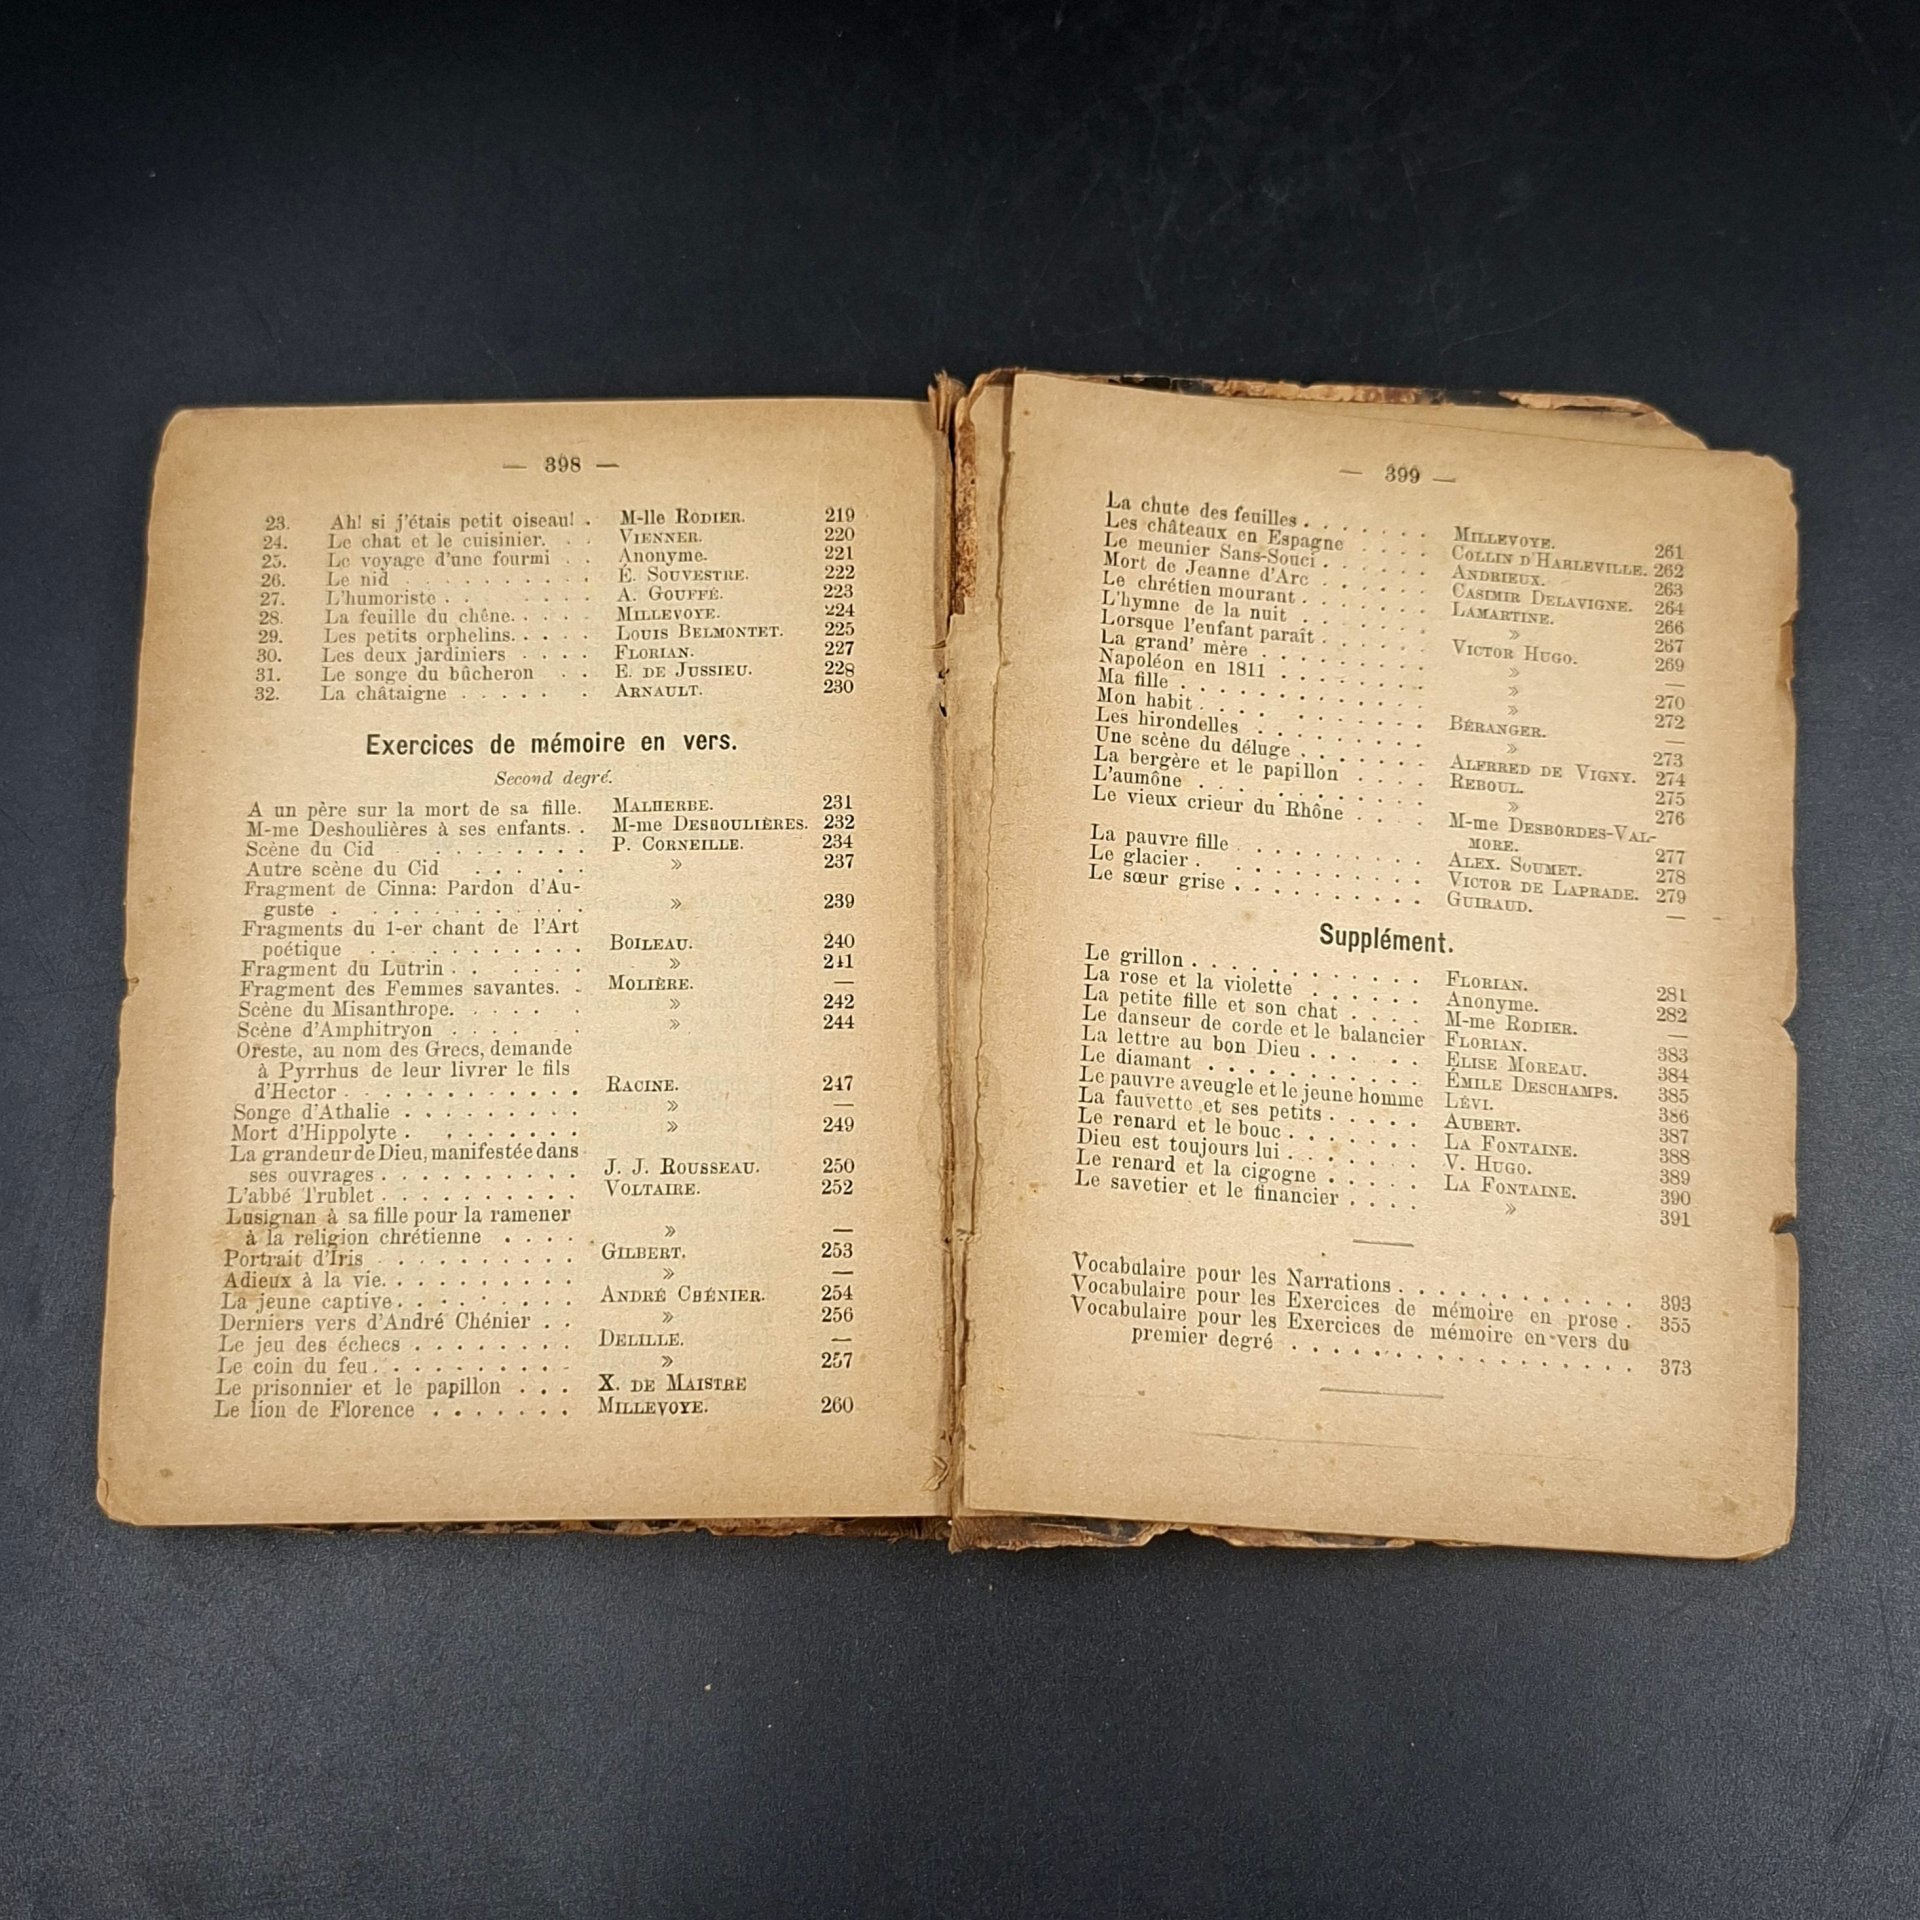 — 398 —
23. Ah! si j'étais petit oiseau! . M-lle Rodier. 219
24. Le chat et le cuisinier. . . Vienner. 220
25. Le voyage d'une fourmi . . Anonyme. 221
26. Le nid . . . . . . . . . É. Souvestre. 222
27. L'humoriste . . . . . . . A. Gouffé. 223
28. La feuille du chêne. . . . . Millevoye. 224
29. Les petits orphelins. . . . . Louis Belmontet. 225
30. Les deux jardiniers . . . . Florian. 227
31. Le songe du bûcheron . . E. de Jussieu. 228
32. La châtaigne . . . . . . Arnault. 230
Exercices de mémoire en vers.
Second degré.
A un père sur la mort de sa fille. Malherbe. 231
M-me Deshoulières à ses enfants. . M-me Deshoulières. 232
Scène du Cid . . . . . . . . P. Corneille. 234
Autre scène du Cid . . . . . . » 237
Fragment de Cinna: Pardon d'Au-
guste . . . . . . . . . . . . » 239
Fragments du 1-er chant de l'Art
poétique . . . . . . . . . . Boileau. 240
Fragment du Lutrin . . . . . . » 241
Fragment des Femmes savantes. . Molière. —
Scène du Misanthrope. . . . . . » 242
Scène d'Amphitryon . . . . . . » 244
Oreste, au nom des Grecs, demande
à Pyrrhus de leur livrer le fils
d'Hector . . . . . . . . . . . Racine. 247
Songe d'Athalie . . . . . . . . . » —
Mort d'Hippolyte . . . . . . . . » 249
La grandeur de Dieu, manifestée dans
ses ouvrages . . . . . . . . . . J. J. Rousseau. 250
L'abbé Trublet . . . . . . . . . . Voltaire. 252
Lusignan à sa fille pour la ramener
à la religion chrétienne . . . . » —
Portrait d'Iris . . . . . . . . . . Gilbert. 253
Adieux à la vie. . . . . . . . . . » —
La jeune captive . . . . . . . . . André Chénier. 254
Derniers vers d'André Chénier . . » 256
Le jeu des échecs . . . . . . . . Delille. —
Le coin du feu . . . . . . . . . . » 257
Le prisonnier et le papillon . . . X. de Maistre
Le lion de Florence . . . . . . . Millevoye. 260
— 399 —
La chute des feuilles . . . . . . . Millevoye. 261
Les châteaux en Espagne . . . . Collin d'Harleville. 262
Le meunier Sans-Souci . . . . . . Andrieux. 263
Mort de Jeanne d'Arc . . . . . . Casimir Delavigne. 264
Le chrétien mourant . . . . . . . Lamartine. 266
L'hymne de la nuit . . . . . . . » 267
Lorsque l'enfant paraît . . . . . . Victor Hugo. 269
La grand' mère . . . . . . . . . » —
Napoléon en 1811 . . . . . . . . » 270
Ma fille . . . . . . . . . . . . . » 272
Mon habit . . . . . . . . . . . . Béranger. —
Les hirondelles . . . . . . . . . » 273
Une scène du déluge . . . . . . . Alfrred de Vigny. 274
La bergère et le papillon . . . . Reboul. 275
L'aumône . . . . . . . . . . . . » 276
Le vieux crieur du Rhône . . . . M-me Desbordes-Val-
more. 277
La pauvre fille . . . . . . . . . . Alex. Soumet. 278
Le glacier . . . . . . . . . . . . Victor de Laprade. 279
Le sœur grise . . . . . . . . . . Guiraud. —
Supplément.
Le grillon . . . . . . . . . . . . Florian. 281
La rose et la violette . . . . . . Anonyme. 282
La petite fille et son chat . . . . M-me Rodier. —
Le danseur de corde et le balancier Florian. 383
La lettre au bon Dieu . . . . . . Elise Moreau. 384
Le diamant . . . . . . . . . . . Émile Deschamps. 385
Le pauvre aveugle et le jeune homme Lévi. 386
La fauvette et ses petits . . . . . Aubert. 387
Le renard et le bouc . . . . . . . La Fontaine. 388
Dieu est toujours lui . . . . . . . V. Hugo. 389
Le renard et la cigogne . . . . . La Fontaine. 390
Le savetier et le financier . . . . » 391
Vocabulaire pour les Narrations . . . . . . . . . . . . 393
Vocabulaire pour les Exercices de mémoire en prose . 355
Vocabulaire pour les Exercices de mémoire en vers du
premier degré . . . . . . . . . . . . . . . . . . 373